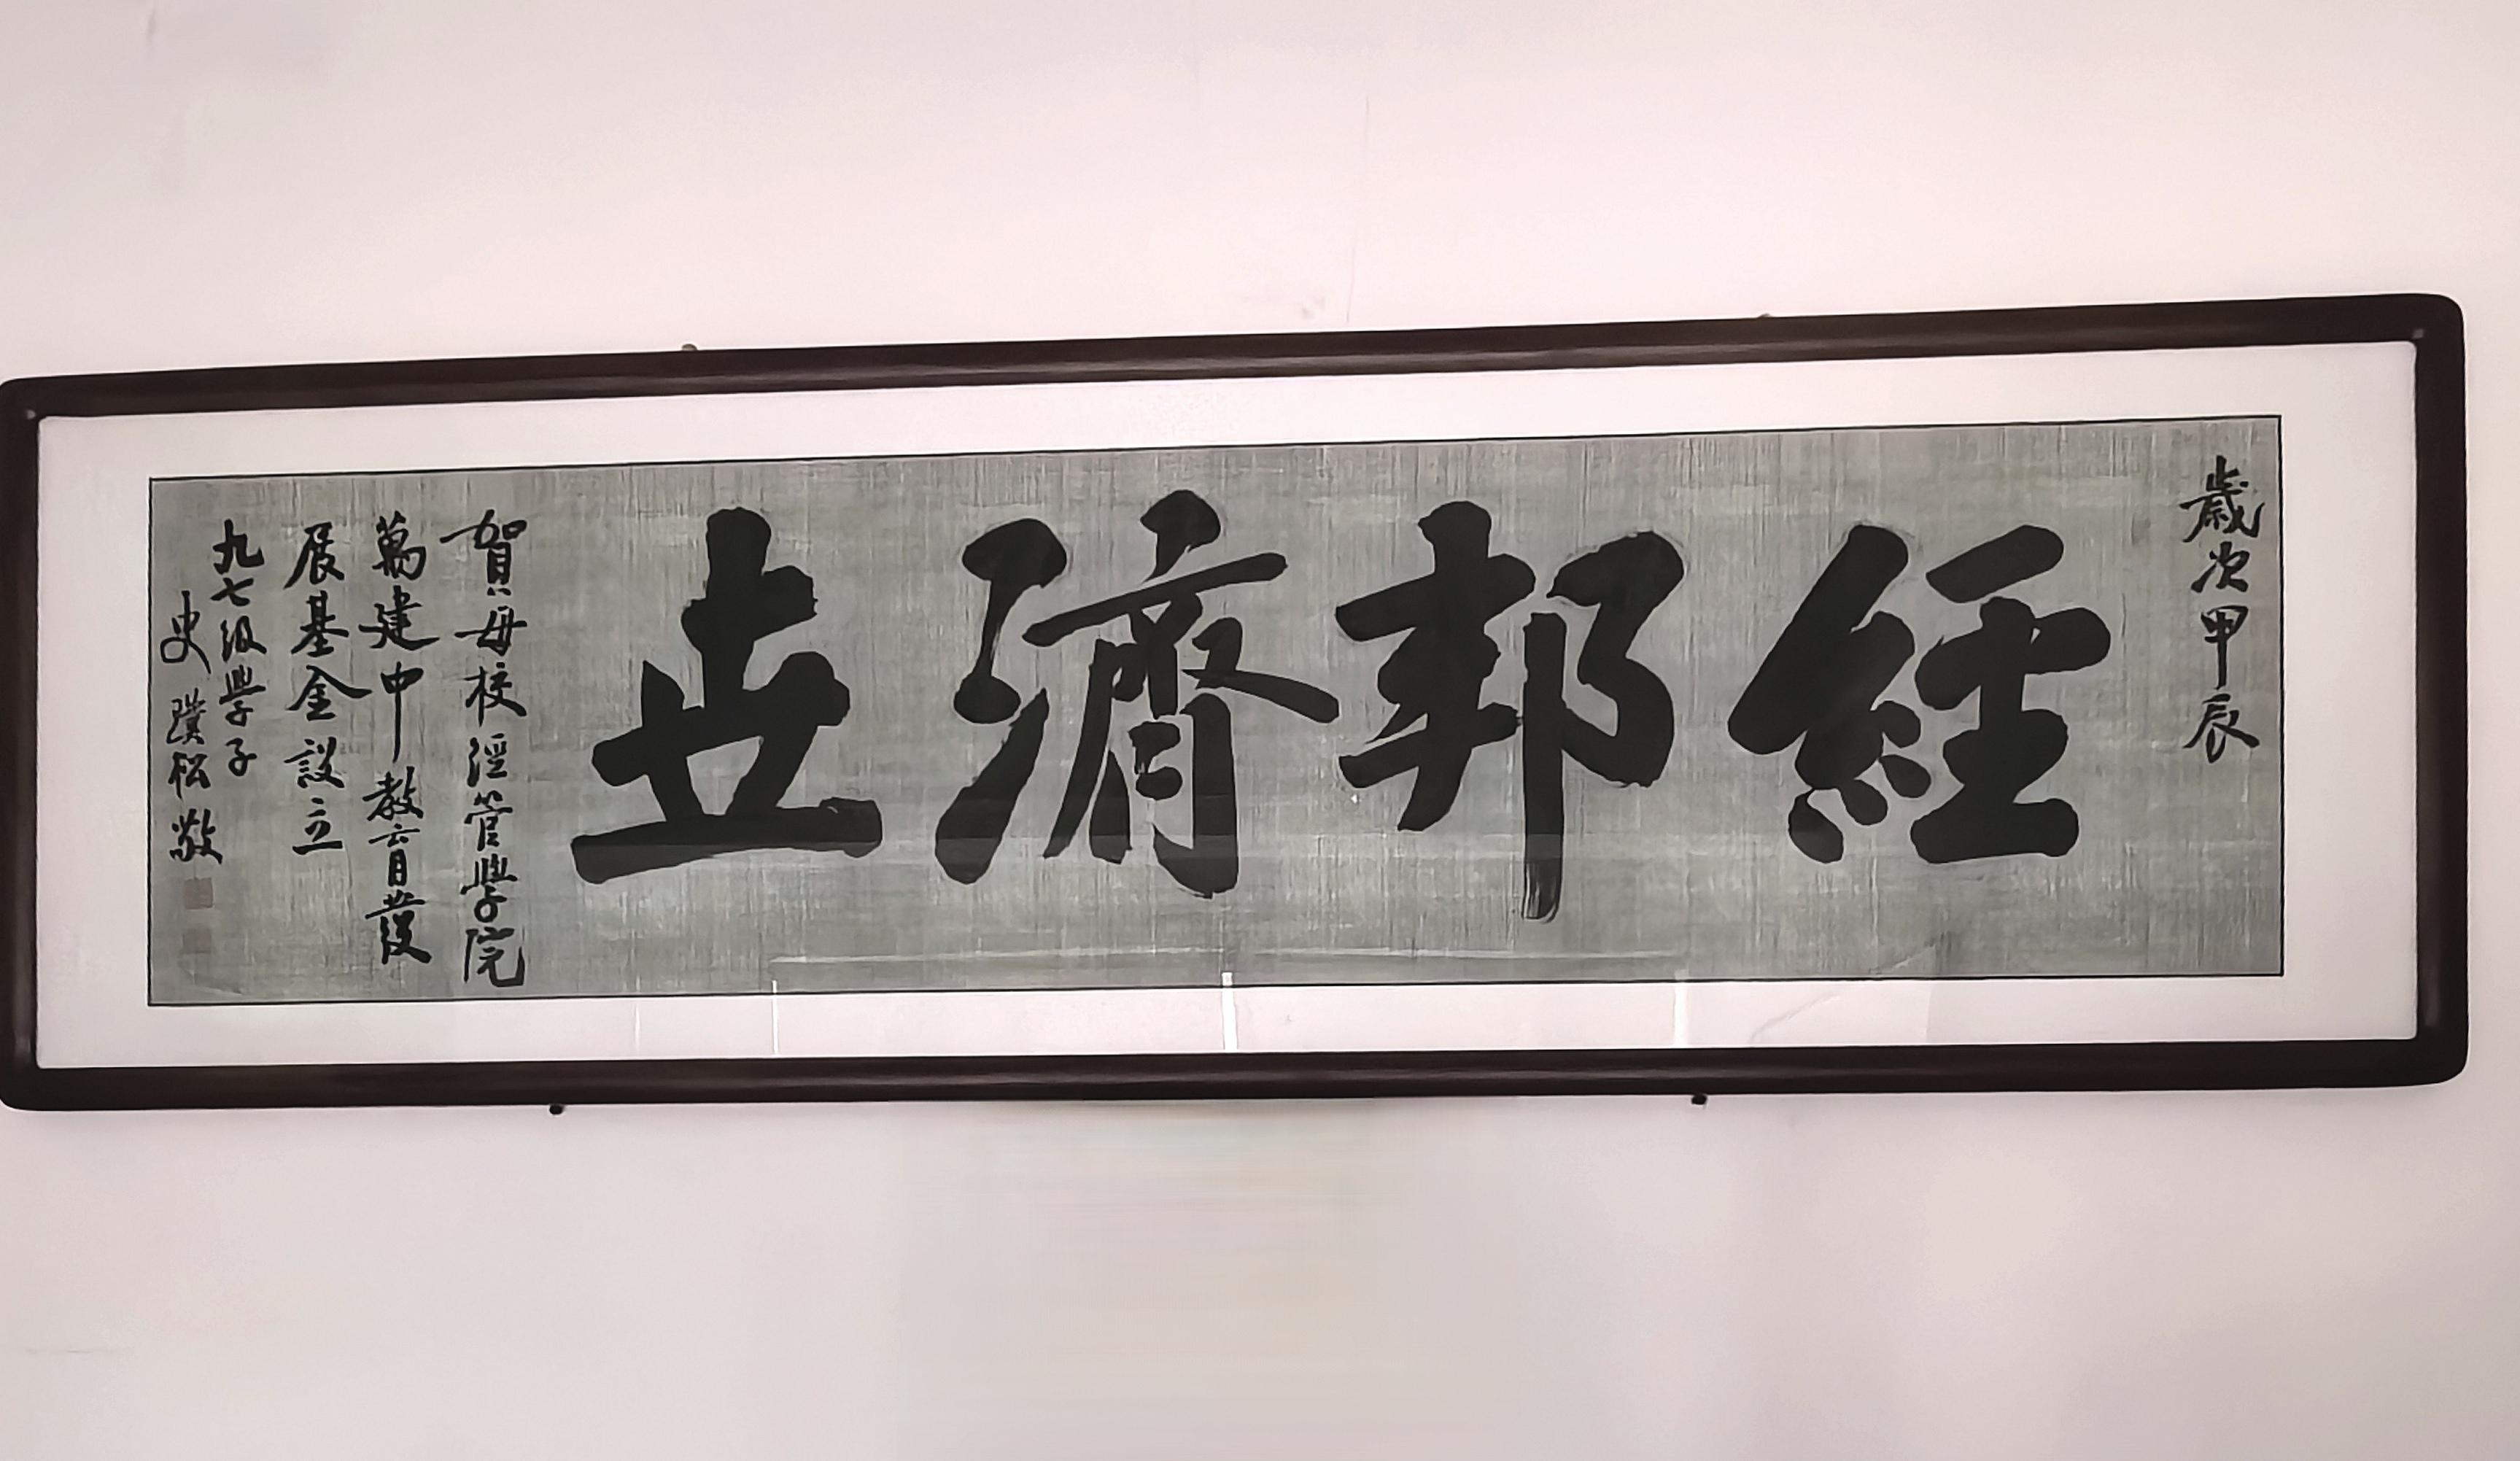 歲次甲辰
經邦濟世
賀母校經管學院
萬建中教育發
展基金設立
九七級學子
史璞松敬